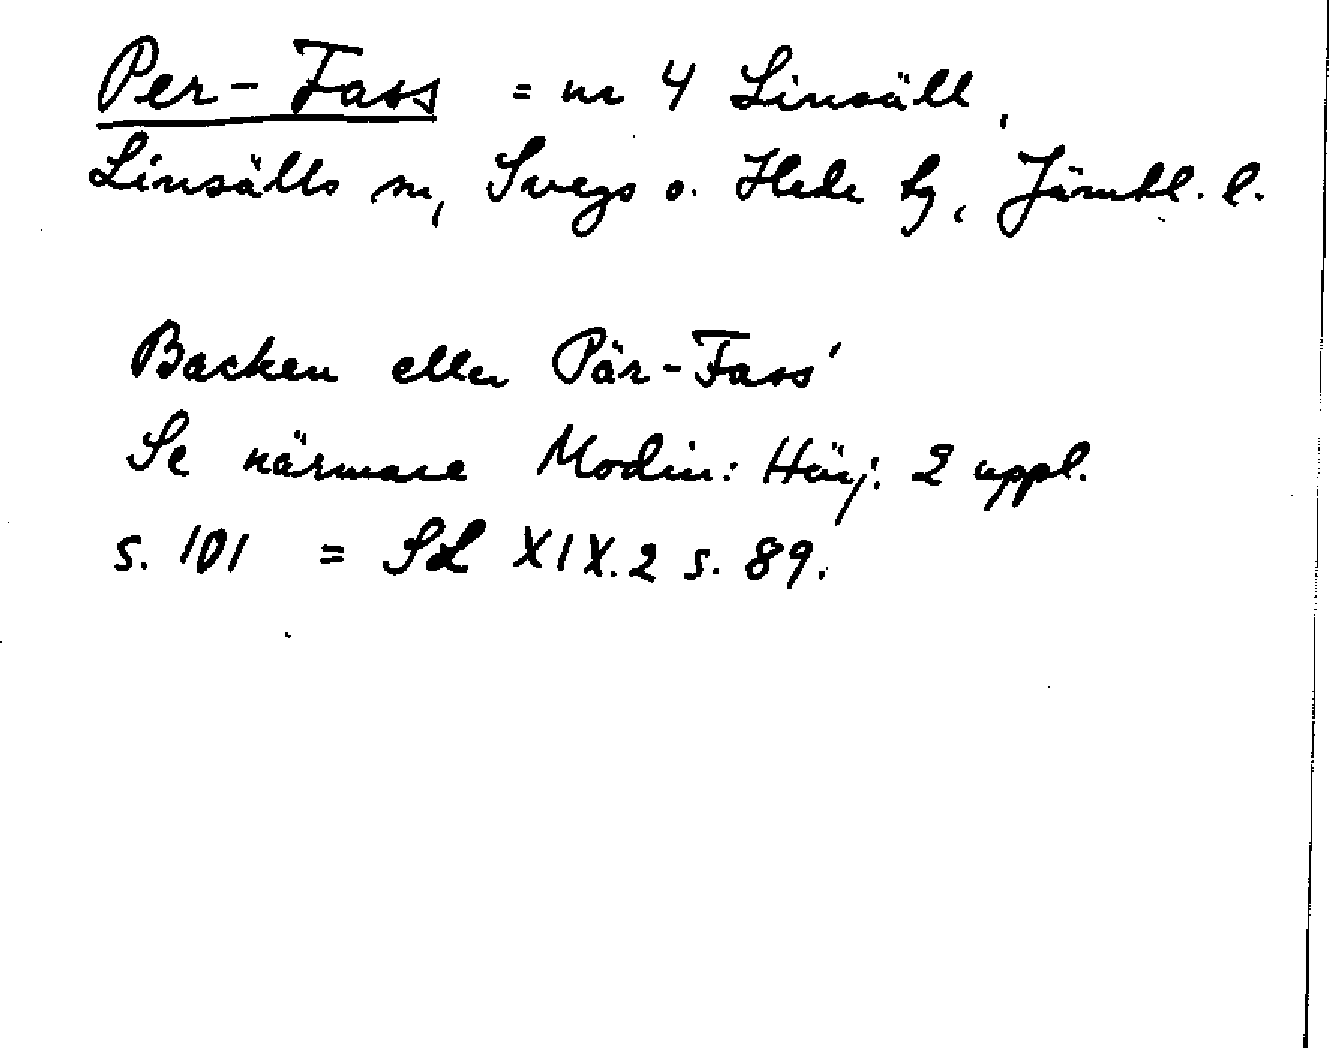 Per-Fass = nr 4 Linsäll,
Linsälls sn, Svegs o. Hede tg, Jämtl. l.
Backen eller Pär-Fass'
Se närmare Modin: Härj. 2 uppl.
s. 101 = SL XIX.2 s. 89.